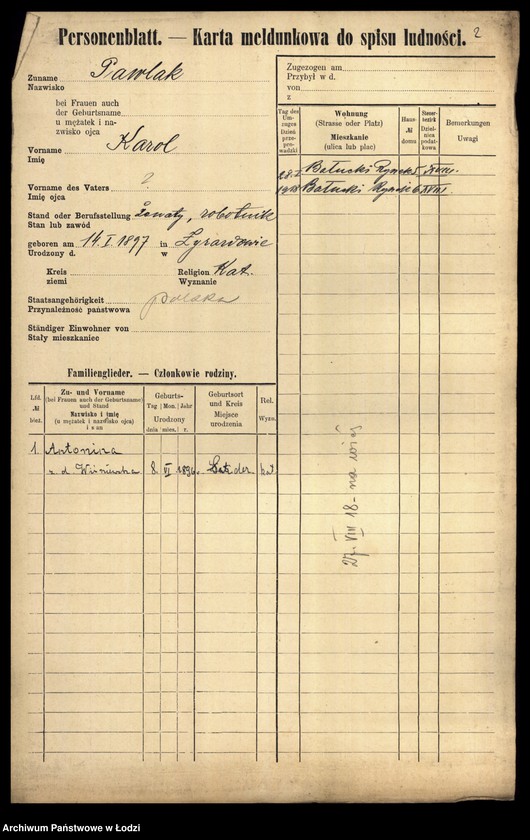 Personenblatt. — Karta meldunkowa do spisu ludności. 2
Zuname Pawlak
Nazwisko
bei Frauen auch
der Geburtsname
u mężatek i na-
zwisko ojca
Vorname Karol
Imię
Vorname des Vaters ?
Imię ojca
Stand oder Berufsstellung Żonaty, robotnik
Stan lub zawód
geboren am 14.I.1897 in Żyrardowie
Urodzony d. w
Kreis Religion Kat.
ziemi Wyznanie
Staatsangehörigkeit polska
Przynależność państwowa
Ständiger Einwohner von
Stały mieszkaniec
Zugezogen am
Przybył w d.
von
z
Tag des Um-zuges Dzień prze-prowadzki
Wohnung (Strasse oder Platz) Mieszkanie (ulica lub plac)
Haus- № domu
Steuer-bezirk Dziel-nica podat-kowa
Bemerkungen Uwagi
Bałucki Rynek 5 XVIII.
1918 Bałucki Rynek 6 XVIII.
27. VIII 18 - na wieś
Familienglieder. — Członkowie rodziny.
Lfd. № bież.
Zu- und Vorname (bei Frauen auch der Geburtsname) und Stand Nazwisko i imię (u mężatek i nazwisko ojca) i stan
Geburts- Tag | Mon. | Jahr Urodzony dnia | mies. | r.
Geburtsort und Kreis Miejsce urodzenia
Rel. Wyzn.
1. Antonina
z d. Wiśniewska 8 VI 1896 kat
Archiwum Państwowe w Łodzi